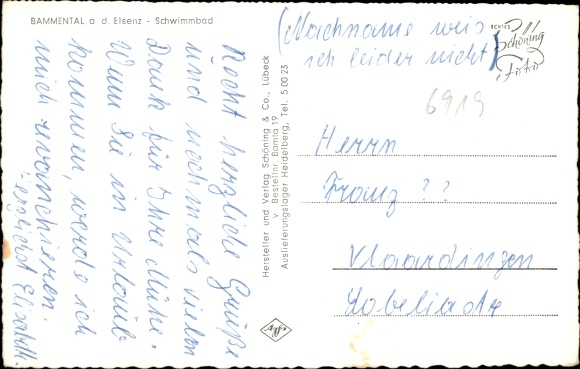 BAMMENTAL a. d. Elsenz - Schwimmbad
Recht herzliche Grüße
und nochmals vielen
Dank für Ihre Mühe.
Wenn Sie in Urlaub
kommen, werde ich
mich revanchieren.
Herzlichst Elisabeth.
Hersteller und Verlag Schöning & Co., Lübeck
v Bestellnr Bamta 19
Auslieferungslager Heidelberg, Tel. 5 00 23
(Nachname weis
ich leider nicht)
ECHTES
Schöning
Foto
6919
Herrn
Franz ??
Vlaardingen
Lobeliastr
Agfa